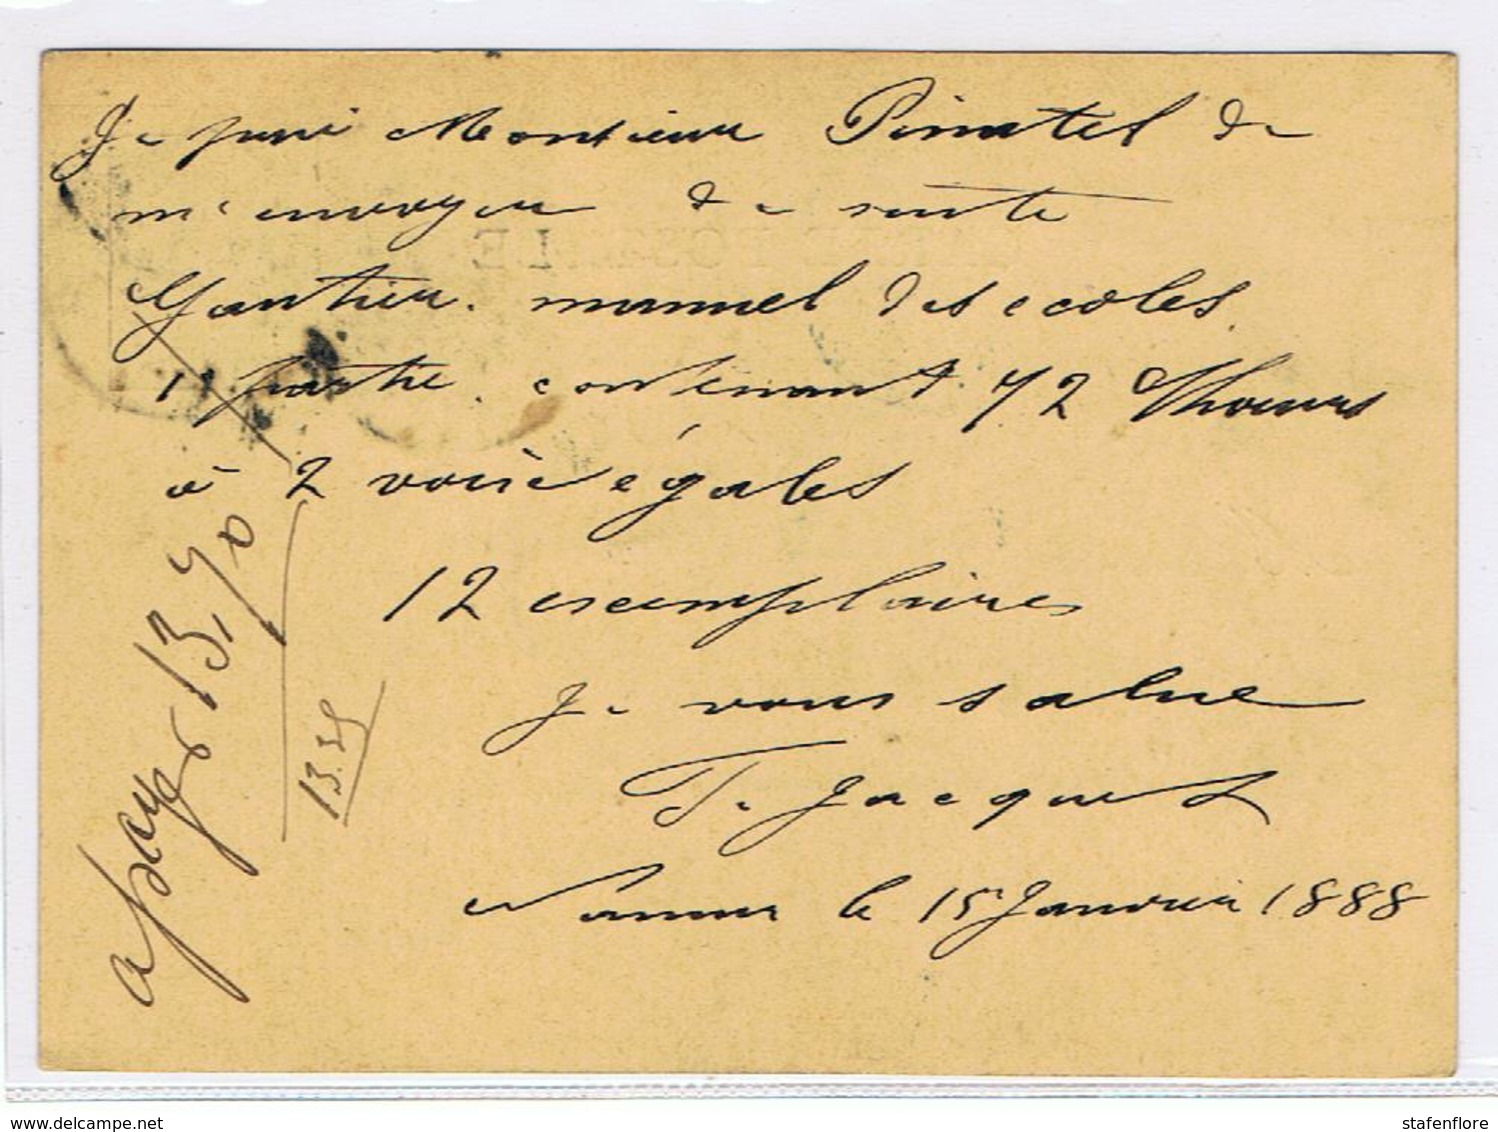 Je prie Monsieur Pinatel de
m'envoyer de suite
Gautier. manuel des ecoles.
1e partie. contenant 72 Choeurs
à 2 voixs égales
12 exemplaires
Je vous salue
T. Jacquet
Namur le 15 Janvier 1888
a payer 13,70
13.25
CARTE POSTALE
delcampe.net
stafenflore